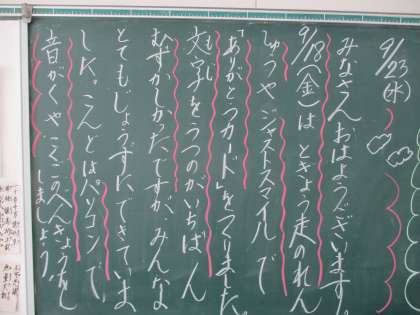 9/23(水)
みなさんおはようございます。
9/18(金)はときょう走のれん
しゅうやジャストスマイルで
「ありがとうカード」をつくりました。
もじ
文字をうつのがいちばん
むずかしかったですが、みんな
とてもじょうずにできていま
した。こんどはパソコンで、
音がくやこくごのべんきょうを
しましょう。